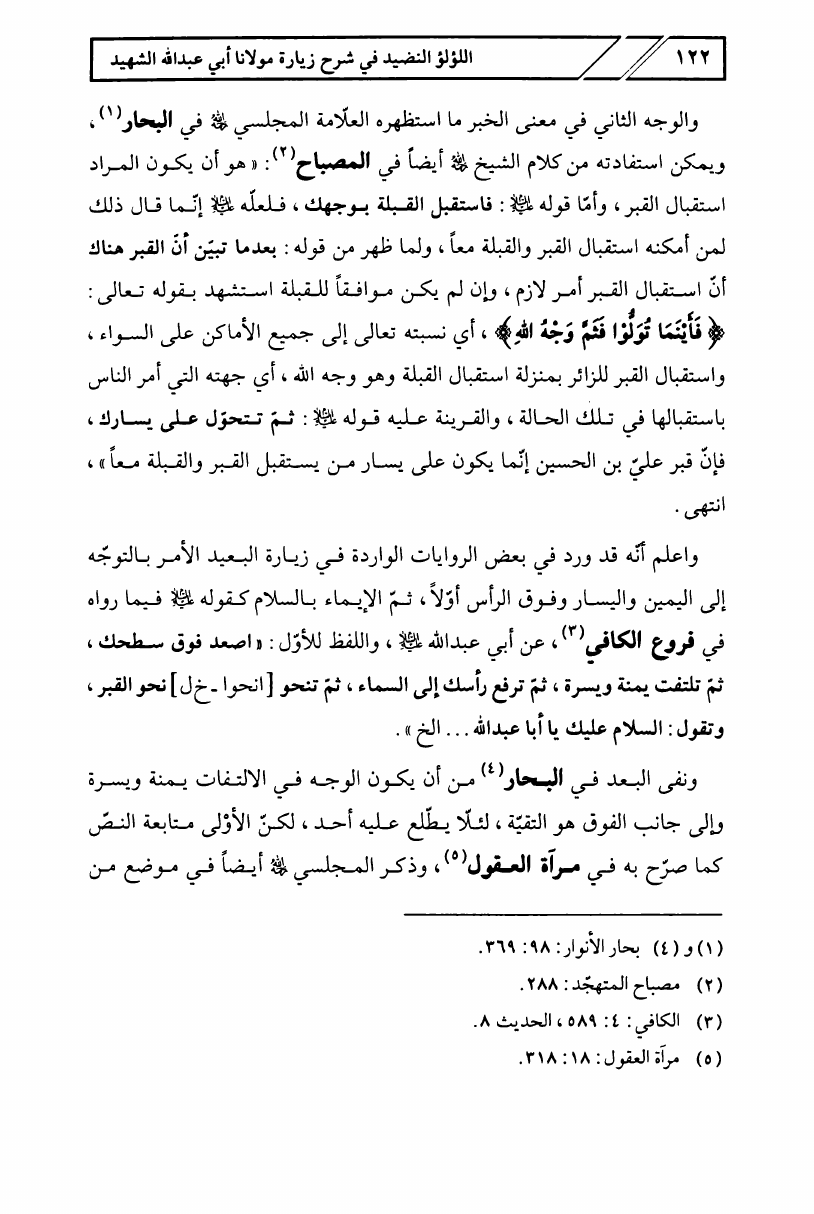 ١٢٢ اللؤلؤ النضيد في شرح زيارة مولانا أبي عبدالله الشهيد
والوجه الثاني في معنى الخبر ما استظهره العلّامة المجلسي في البحار(١) ،
ويمكن استفادته من كلام الشيخ أيضاً في المصباح(٢) : « هو أن يكون المراد
استقبال القبر ، وأمّا قوله : فاستقبل القبلة بوجهك ، فلعلّه إنّما قال ذلك
لمن أمكنه استقبال القبر والقبلة معاً ، ولما ظهر من قوله : بعدما تبيّن أنّ القبر هناك
أنّ استقبال القبر أمر لازم ، وإن لم يكن موافقاً للقبلة استشهد بقوله تعالى :
﴿ فَأَيْنَمَا تُوَلُّوْا فَثَمَّ وَجْهُ اللهِ ﴾ ، أي نسبته تعالى إلى جميع الأماكن على السواء ،
واستقبال القبر للزائر بمنزلة استقبال القبلة وهو وجه الله ، أي جهته التي أمر الناس
باستقبالها في تلك الحالة ، والقرينة عليه قوله : ثمّ تتحوّل على يسارك ،
فإنّ قبر عليّ بن الحسين إنّما يكون على يسار من يستقبل القبر والقبلة معاً » ،
انتهى .
واعلم أنّه قد ورد في بعض الروايات الواردة في زيارة البعيد الأمر بالتوجّه
إلى اليمين واليسار وفوق الرأس أوّلاً ، ثمّ الإيماء بالسلام كقوله فيما رواه
في فروع الكافي(٣) ، عن أبي عبدالله ، واللفظ للأوّل : « اصعد فوق سطحك ،
ثمّ تلتفت يمنة ويسرة ، ثمّ ترفع رأسك إلى السماء ، ثمّ تنحو [ انحوا ـ خ ل ] نحو القبر ،
وتقول : السلام عليك يا أبا عبدالله ... الخ » .
ونفى البعد في البحار(٤) من أن يكون الوجه في الالتفات يمنة ويسرة
وإلى جانب الفوق هو التقيّة ، لئلّا يطّلع عليه أحد ، لكنّ الأوْلى متابعة النصّ
كما صرّح به في مرآة العقول(٥) ، وذكر المجلسي أيضاً في موضع من
(١) و (٤) بحار الأنوار : ٩٨ : ٣٦٩.
(٢) مصباح المتهجّد : ٢٨٨.
(٣) الكافي : ٤ : ٥٨٩ ، الحديث ٨.
(٥) مرآة العقول : ١٨ : ٣١٨.